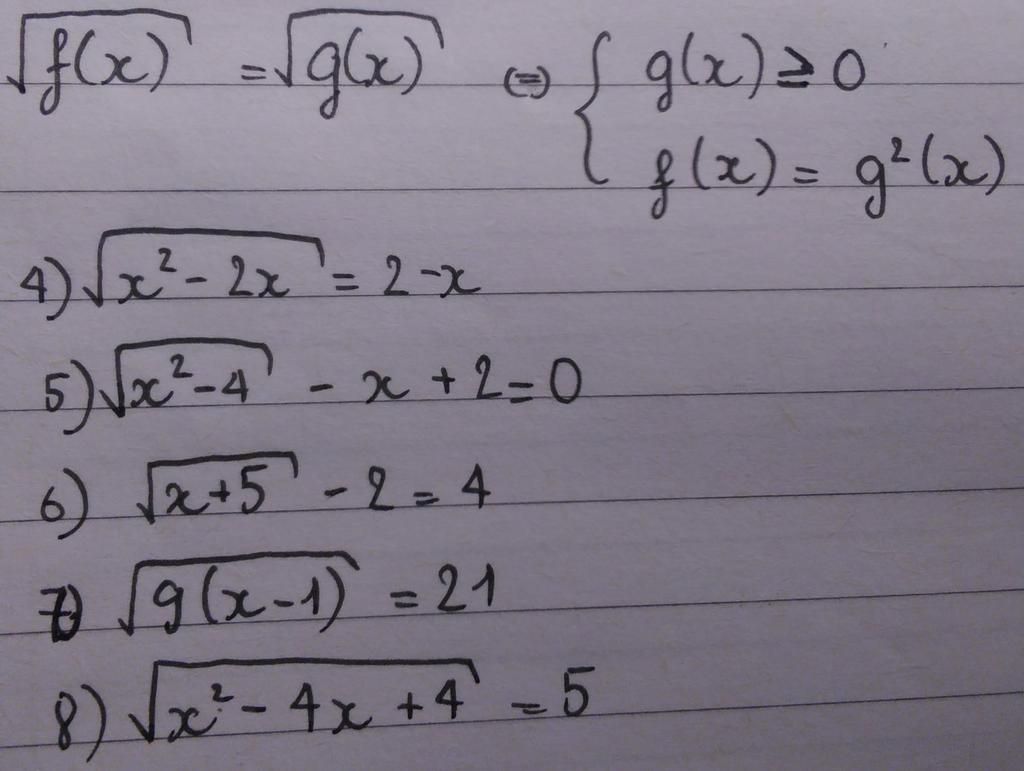 √f(x) = √g(x) ⇔ { g(x) ≥ 0
f(x) = g²(x)
4) √x² - 2x = 2 - x
5) √x² - 4 - x + 2 = 0
6) √x + 5 - 2 = 4
7) √9(x - 1) = 21
8) √x² - 4x + 4 = 5